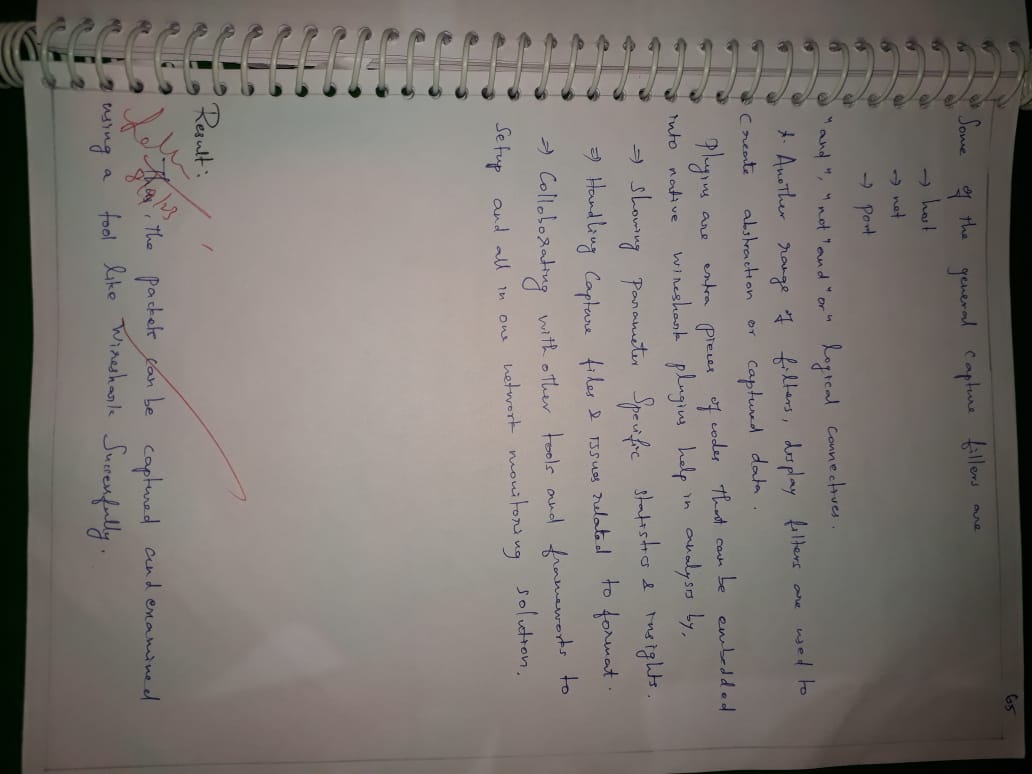 65
Some of the general capture filters are
→ host
→ net
→ port
"and", "not" and "or" logical connectives.
* Another range of filters, display filters are used to
create abstraction or captured data.
Plugins are extra pieces of codes that can be embedded
into native wireshark plugins help in analysis by,
⇒ Showing Parameter Specific statistics & insights.
⇒ Handling Capture files & issues related to format.
⇒ Collaborating with other tools and frameworks to
Setup and all in one network monitoring solution.
Result:
Thus, the packets can be captured and examined
using a tool like Wireshark Sucessfully.